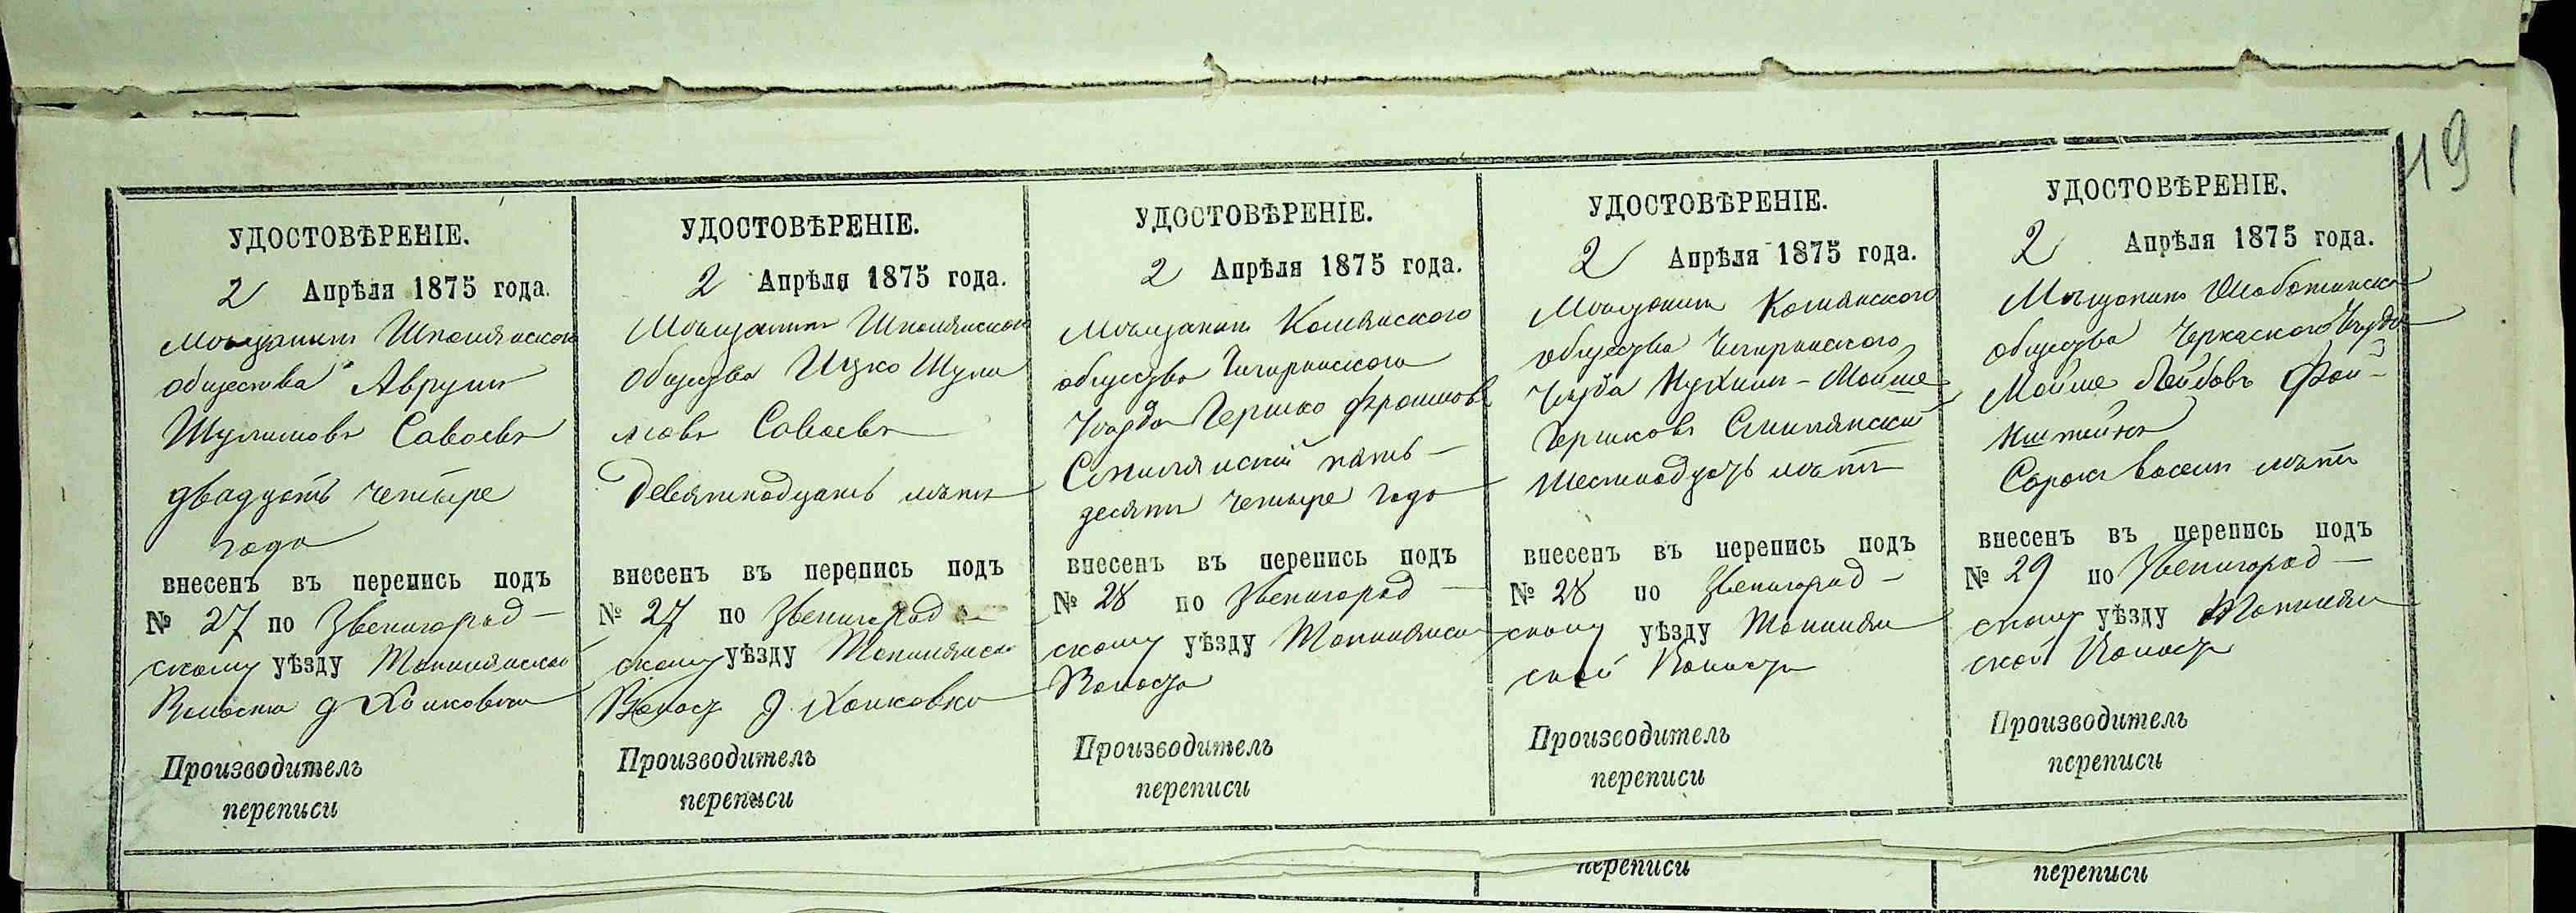 19
УДОСТОВѢРЕНІЕ.
2 Апрѣля 1875 года.
Мѣщанинъ Шполянского
общества Аврумъ
Шулимовъ Саваевъ
двадцать четыре
года
внесенъ въ перепись подъ
№ 27 по Звенигород-
скому уѣзду Топилянской
Волости д
Производитель
переписи
УДОСТОВѢРЕНІЕ.
2 Апрѣля 1875 года.
Мѣщанинъ Шполянского
Общества Ицко Шули
мовъ Саваевъ
Девятнадцать лѣтъ
внесенъ въ перепись подъ
№ 27 по Звенигород-
скому уѣзду Топилянско
Волост д.
Производитель
переписи
УДОСТОВѢРЕНІЕ.
2 Апрѣля 1875 года.
Мѣщанинъ
общества Чигиринского
Уѣзда Гершко Фроимовъ
Смилянскій пять-
десятъ четыре года
внесенъ въ перепись подъ
№ 28 по Звенигород-
скому уѣзду Топилянск
Волост
Производитель
переписи
УДОСТОВѢРЕНІЕ.
2 Апрѣля 1875 года.
Мѣщанинъ
общества Чигиринского
Уѣзда Нухим-Мойше
Гершковъ Смилянскій
Шестнадцать лѣтъ
внесенъ въ перепись подъ
№ 28 по Звенигород-
скому уѣзду Топилян
ской Волост
Производитель
переписи
УДОСТОВѢРЕНІЕ.
2 Апрѣля 1875 года.
Мѣщанинъ
общества Черкаского Уѣзда
Мойше Лейбовъ Фай-
нштейнъ
Сорокъ восемъ лѣтъ
внесенъ въ перепись подъ
№ 29 по Звенигород-
скому уѣзду Топилян
ской Волост
Производитель
переписи
переписи
переписи